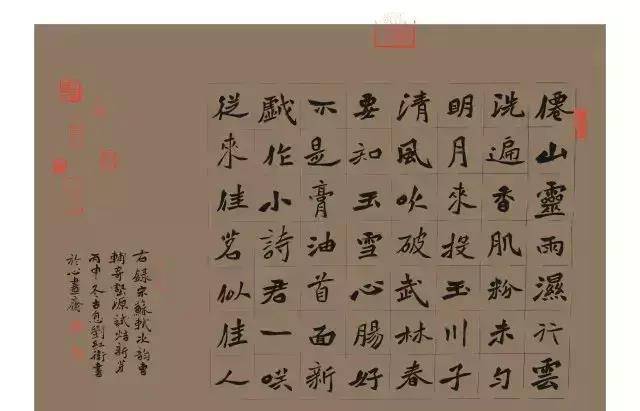 僊山靈雨濕行雲
洗遍香肌粉未勻
明月來投玉川子
清風吹破武林春
要知玉雪心腸好
不是膏油首面新
戲作小詩君一咲
從來佳茗似佳人
右錄宋蘇軾次韵曹
輔寄壑源試焙新芽
丙申冬吉息劉紅衛書
於心畫齋